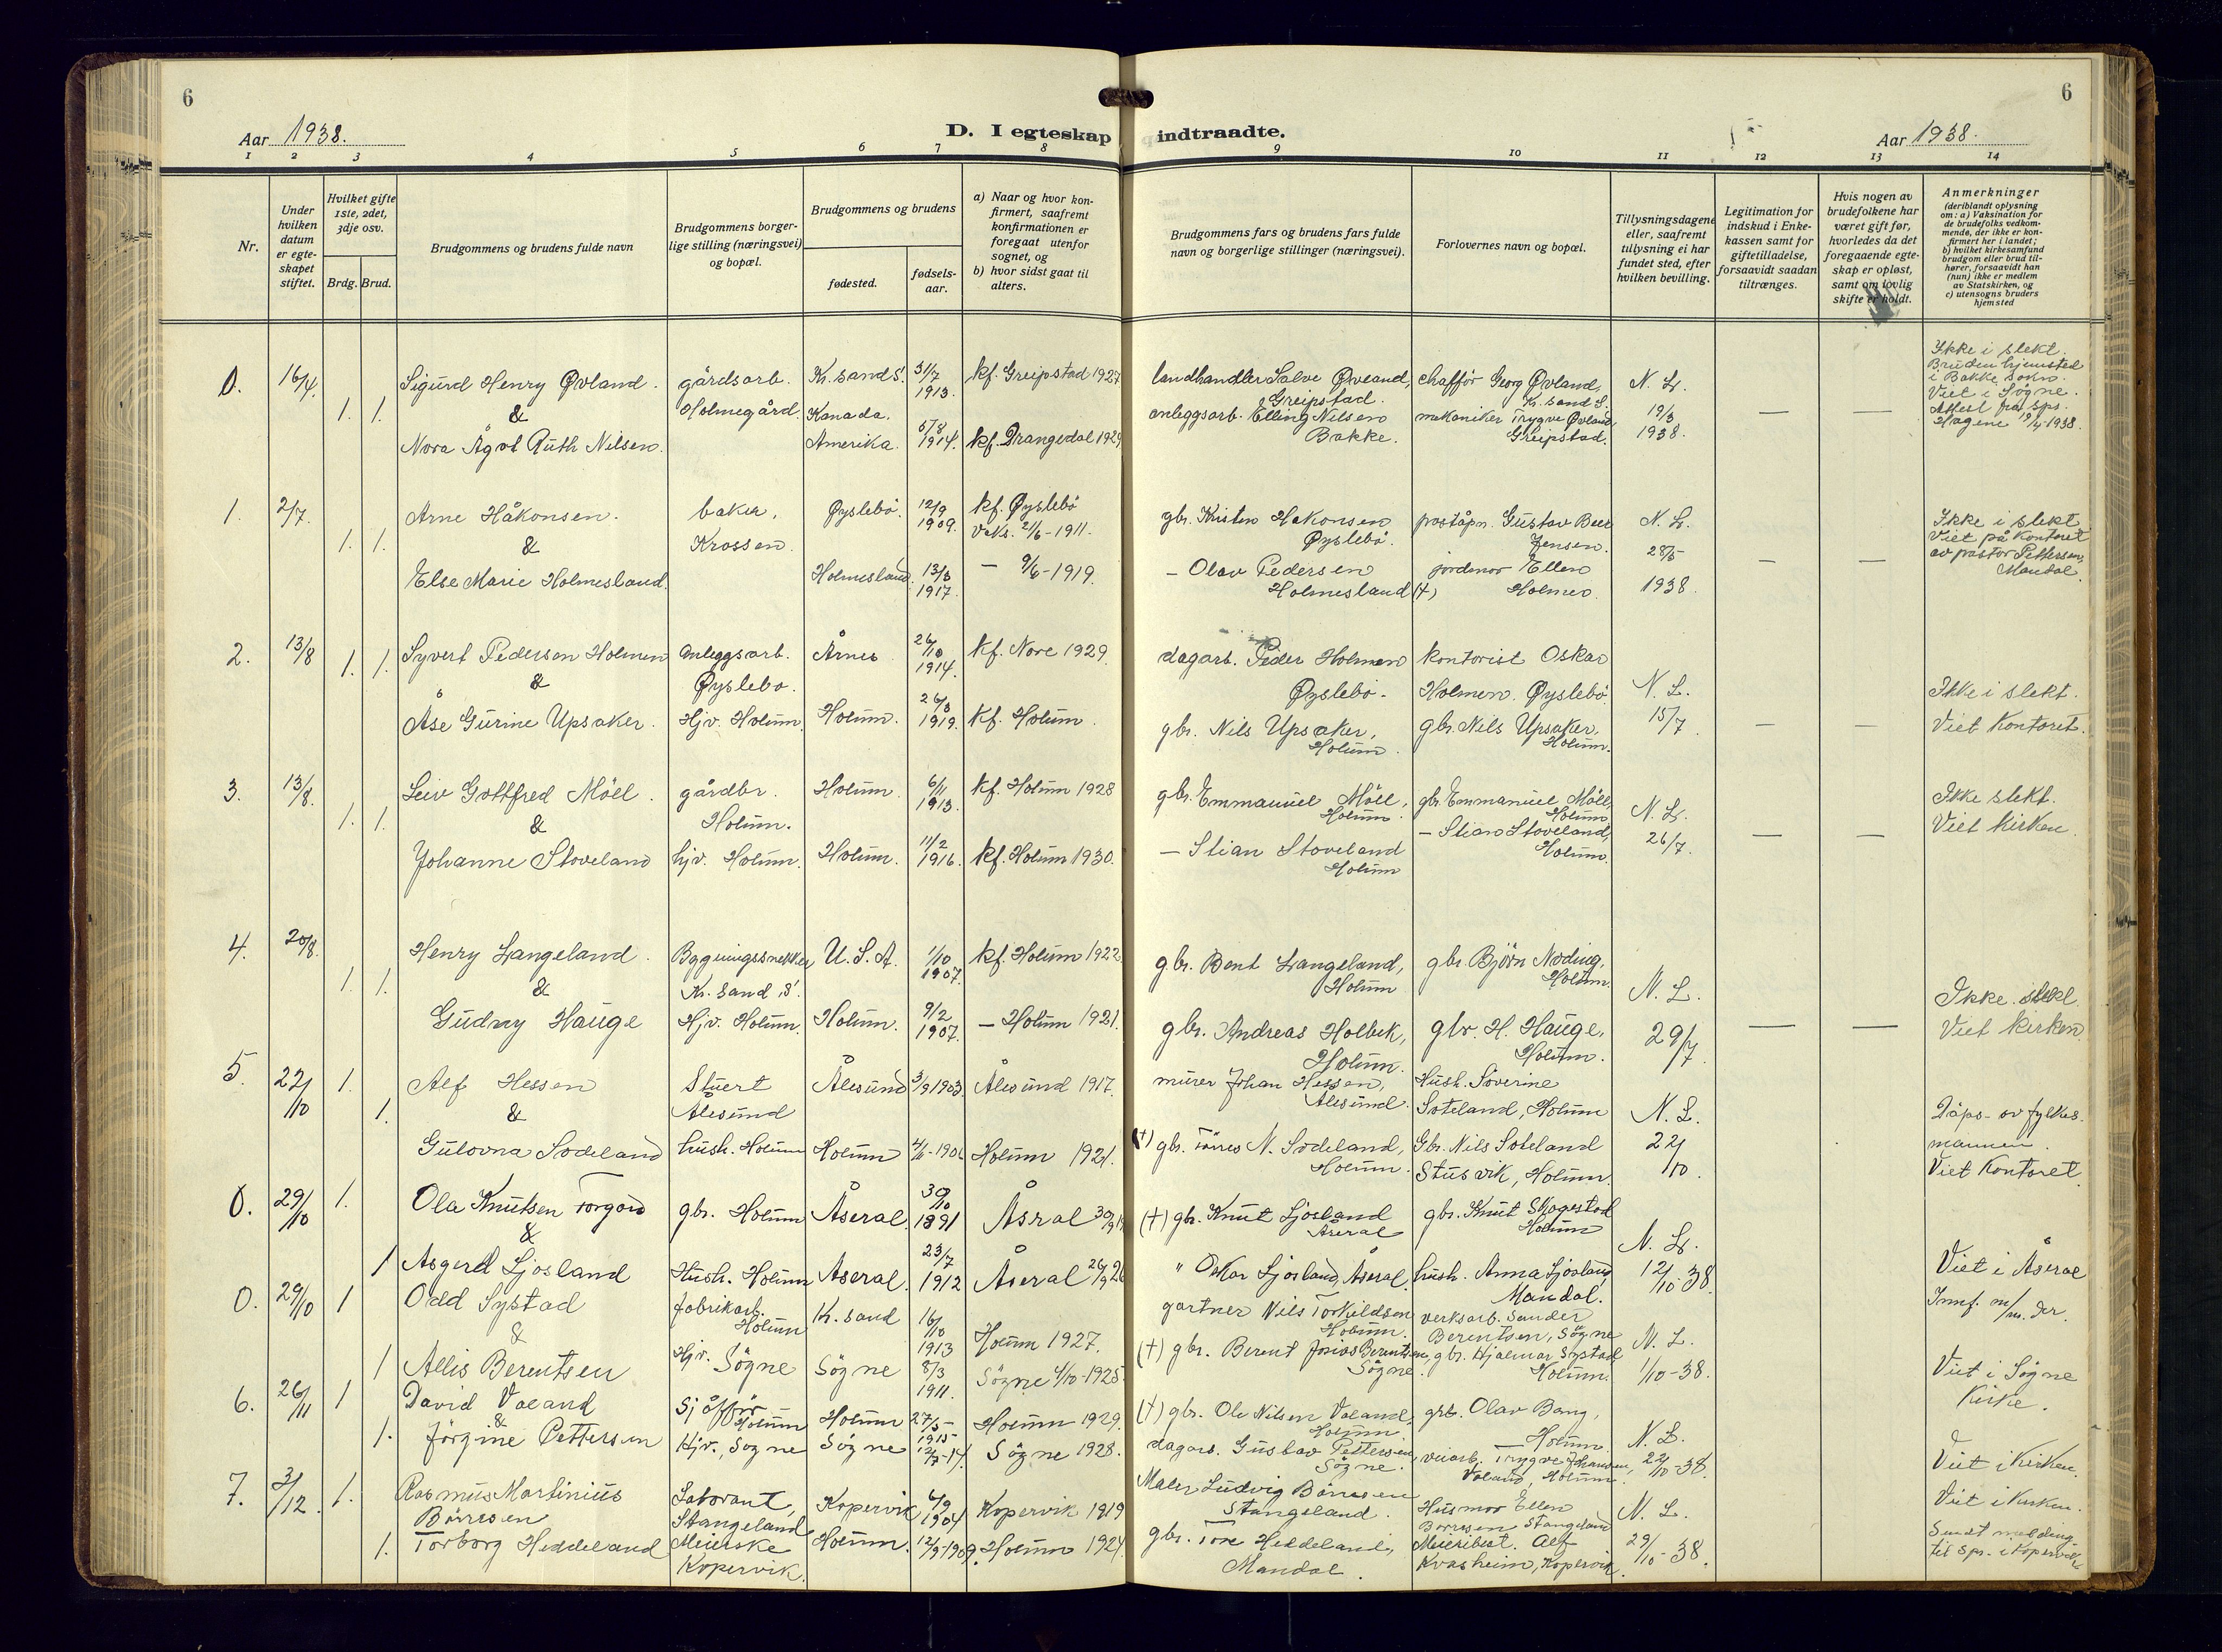 6
6
Aar 1938.
D. I egteskap indtraadte.
Aar 1938.
1 2 3 4 5 6 7 8 9 10 11 12 13 14
Nr.
Under hvilken datum er egteskapet stiftet.
Hvilket gifte 1ste, 2det, 3dje osv.
Brdg. Brud.
Brudgommens og brudens fulde navn
Brudgommens borgerlige stilling (næringsvei) og bopæl.
Brudgommens og brudens
fødested.
fødselsaar.
a) Naar og hvor konfirmert, saafremt konfirmationen er foregaat utenfor sognet, og
b) hvor sidst gaat til alters.
Brudgommens fars og brudens fars fulde navn og borgerlige stillinger (næringsvei).
Forlovernes navn og bopæl.
Tillysningsdagene eller, saafremt tillysning ei har fundet sted, efter hvilken bevilling.
Legitimation for indskud i Enkekassen samt for giftetilladelse, forsaavidt saadan tiltrænges.
Hvis nogen av brudefolkene har været gift før, hvorledes da det foregaaende egteskap er opløst, samt om lovlig skifte er holdt.
Anmerkninger
(deriblandt oplysning om: a) Vaksination for de brudefolks vedkommende, der ikke er konfirmert her i landet;
b) hvilket kirkesamfund brudgom eller brud tilhører, forsaavidt han (hun) ikke er medlem av Statskirken, og
c) utensogns bruders hjemsted
0. 16/4. 1. 1. Sigurd Henry Øvland. gårdsarb. Kr.sand S. 31/7 1913. kf. Greipstad 1927.
&
Holmegård. Kanada.
Nora Ågot Ruth Nilsen. Amerika. 5/8 1914. kf. Drangedal 1929
landhandler Salve Øvland, Greipstad. chaffør Georg Øvland, Kr. sand S. N. L.
anleggsarb. Elling Nilsen Bakke. mekaniker Trygve Øvland, Greipstad. 19/3 1938. — —
Ikke i slekt.
Bruden hjemsted
i Bakke sokn.
Viet i Søgne.
Attest fra spr.
Hagene 19/4 1938.
1. 2/7. 1. 1. Arne Håkonsen. baker. Øyslebö. 12/9 1909. kf. Øyslebö
&
Krossen. Vaks. 21/6-1911.
Else Marie Holmesland. Holmesland. 13/3 1917. — 9/6-1919.
gbr. Kristen Håkonsen Øyslebö. poståpn. Gustav Beer Jensen. N. L.
— Olav Pedersen Holmesland (+) jordmor Ellen Holmen. 28/5 1938. — —
Ikke i slekt
Viet på kontoret
av pastor Pettersen,
Mandal.
2. 13/8 1. 1. Syvert Pedersen Holmen Anleggsarb. Årnes 26/10 1914. kf. Nore 1929.
&
Øyslebo.
Åse Gurine Upsaker. Hjv. Holum. Holum. 26/3 1919. kf. Holum.
dagarb. Peder Holmen Øyslebö. kontorist Oskar Holmen. Øyslebö. N. L.
gbr. Nils Upsaker, Holum. gbr. Nils Upsaker, Holum. 15/7 — —
Ikke i slekt.
Viet kontoret.
3. 13/8. 1. 1. Leiv Gottfred Möll. gårdbr. Holum. 6/11 1913. kf. Holum 1928
&
Holum.
Johanne Stoveland hjv. Holum. Holum. 11/2 1916. kf. Holum 1930.
gbr. Emmanuel Möll, Holum. gbr. Emmanuel Möll, Holum. N. L.
— Stian Stoveland Holum — Stian Stoveland, Holum. 26/7. — —
Ikke slekt.
Viet kirken.
4. 20/8. 1. 1. Henry Langeland. Bygningssnekker U. S. A. 1/10 1907. kf. Holum 1922
&
Kr. sand, S.
Gudny Hauge Hjv. Holum. Holum. 9/2 1907. — Holum 1921.
gbr. Bent Langeland, Holum gbr. Björn Nöding, Holum. N. L.
gbr. Andreas Holbek, Holum. gbr. H. Hauge, Holum. 29/7. — —
Ikke slekt
Viet kirken
5. 22/10 1. 1. Alf Hessen Stuert Ålesund 3/9 1903 Ålesund 1917.
&
Ålesund
Gulovna Sodeland hush. Holum Holum Holum 1921.
murer Johan Hessen, Ålesund. Hush. Soverine Soteland, Holum N. L.
(+) gbr. Torres N. Sodeland, Holum. Gbr. Nils Soteland Stusvik, Holum. 22/10.
Dåps- ov fylkes-
mannen.
Viet kontoret.
0. 29/10 1. Ola Knutsen Torgord gbr. Holum Åseral. 30/10 1891 Åsral
&
1 Asgerd Ljosland Hush. Holum Aseral. 23/7 1912 Åseral 26/9 26
(+) gbr. Knut Ljosland Åseral gbr. Knut Skogestad Holum N. L.
" Oskar Ljosland, Åseral hush. Anna Ljosland Mandal. 12/10-38.
Viet i Åseral
0. 29/10 1 Odd Systad fabrikarb. Holum Kr. sand 16/10 1913 Holum 1927.
&
1 Allis Berentsen Hjv. Søgne Søgne 8/3 1911. Søgne 4/10-1925.
gartner Nils Torkildsen Holum. verksarb. Sander Berentsen, Søgne N. L.
(+) gbr. Berent Jonas Berentsen, Søgne. gbr. Hjalmar Systad Holum. 1/10-38.
Innf. m/m. der.
Viet i Søgne
Kirke.
6. 26/11 1 David Voland Sjåffør Holum Holum 27/5- 1915 Holum 1929.
&
1. Jörgine Pettersen Hjv. Søgne Søgne 12/7-17. Søgne 1928.
(+) gbr. Ole Nilsen Voland, Holum grb. Olav Bang, — Holum. N. L.
dagarb. Gustav Pettersen, Søgne. veiarb. Trygve Johansen, Voland, Holum. 22/10-38.
Viet i Kirken.
7. 3/12. 1. Rasmus Martinius Börresen Laborant, Stangeland Kopervik 6/9 1904 Kopervik 1919
1. Torborg Heddeland Meierske Kopervik. Holum. 12/9-1909. Holum 1924.
Maler Ludvig Börresen Stangeland. Husmor Ellen Börresen Stangeland N. L.
gbr. Tore Heddeland, Mandal. Meieribest. Alf Kvasheim, Kopervik. 29/10-38.
Viet i Kirken.
Sendt melding
til Spr. i Kopervik